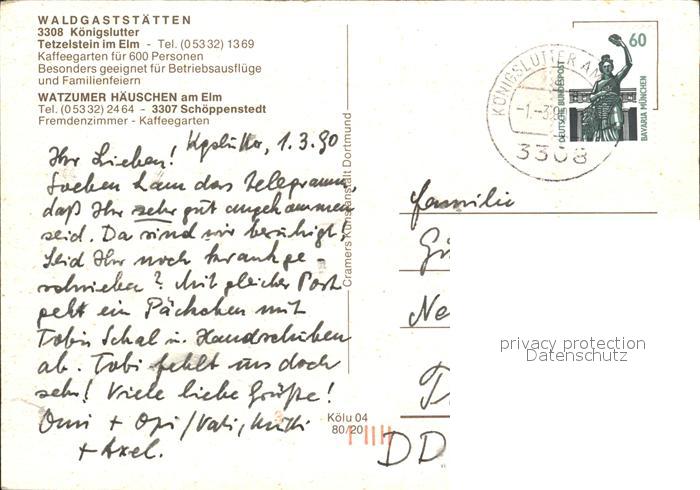 WALDGASTSTÄTTEN
3308 Königslutter
Tetzelstein im Elm - Tel. (05332) 1369
Kaffeegarten für 600 Personen
Besonders geeignet für Betriebsausflüge
und Familienfeiern
WATZUMER HÄUSCHEN am Elm
Tel. (05332) 2464 - 3307 Schöppenstedt
Fremdenzimmer - Kaffeegarten
Kgslutter, 1.3.90
Ihr Lieben!
Soeben kam das Telegramm,
daß Ihr sehr gut angekommen
seid. Da sind wir beruhigt,
Seid Ihr noch krankge-
schrieben? Mit gleicher Post
geht ein Päckchen mit
Tobis Schal u. Handschuhen
ab. Tobi fehlt uns doch
sehr! Viele liebe Grüße!
Omi + Opi / Vati, Mutti
+ Axel.
Cramers Kunstanstalt Dortmund
Kölu 04
80/20
KÖNIGSLUTTER AM
-1.-3.9
3308
60
DEUTSCHE BUNDESPOST
BAVARIA MÜNCHEN
Familie
Ne
DD
privacy protection
Datenschutz